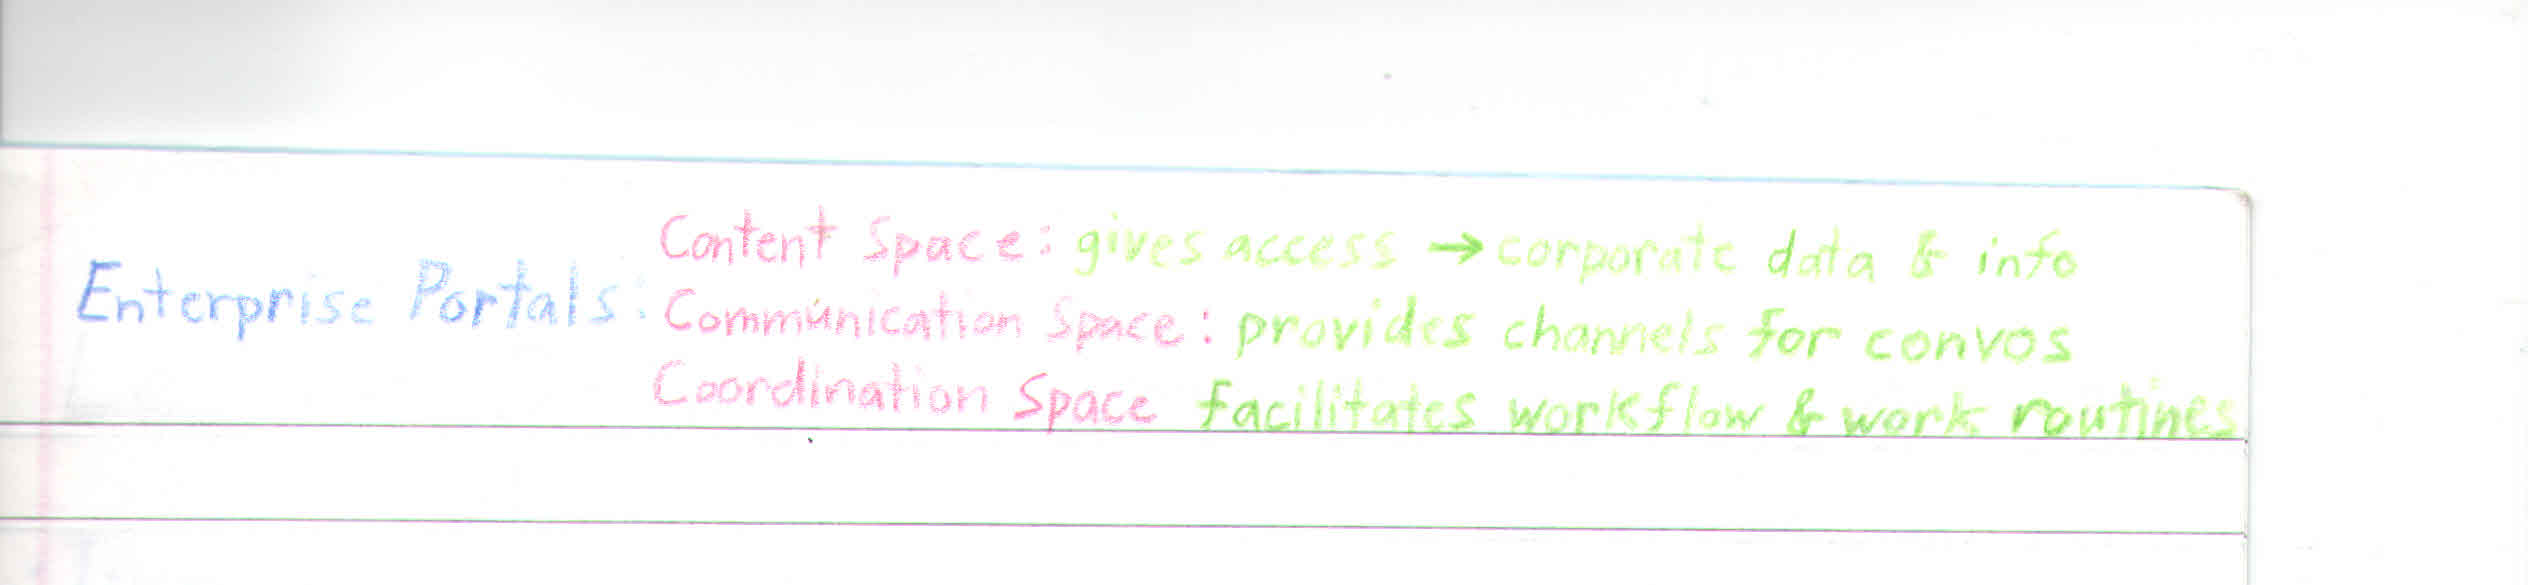 Enterprise Portals:
Content Space: gives access → corporate data & info
Communication Space: provides channels for convos
Coordination Space facilitates workflow & work routines